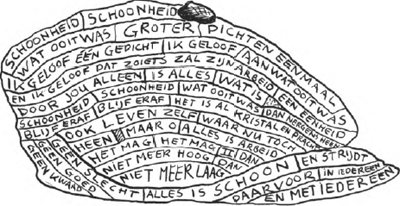 SCHOONHEID SCHOONHEID
WAT OOIT WAS GROTER DICHTEN EENMAAL
IK GELOOF ÉÉN GEDICHT IK GELOOF AAN WAT OOIT WAS
EN IK GELOOF DAT ZOIETS ZAL ZIJN ARBEID
DOOR JOU ALLEEN IS ALLES WAT IS EEN EENHEID
SCHOONHEID SCHOONHEID WAT OOIT WAS DAN
BLIJF ERAF BLIJF ERAF HET IS AL KRISTAL EN
OOK LEVEN ZELF WAAR NU TOCH
HEEN MAAR O ALLES IS ARBEID
GEEN HET MAG HET MAG DAN
GEEN SLECHT NIET MEER HOOG DAN IS SCHOON EN STRIJDT
GEEN GOED NIET MEER LAAG DAARVOOR IN IEDEREEN
GEEN KWAAD ALLES IS EN MET IEDEREEN